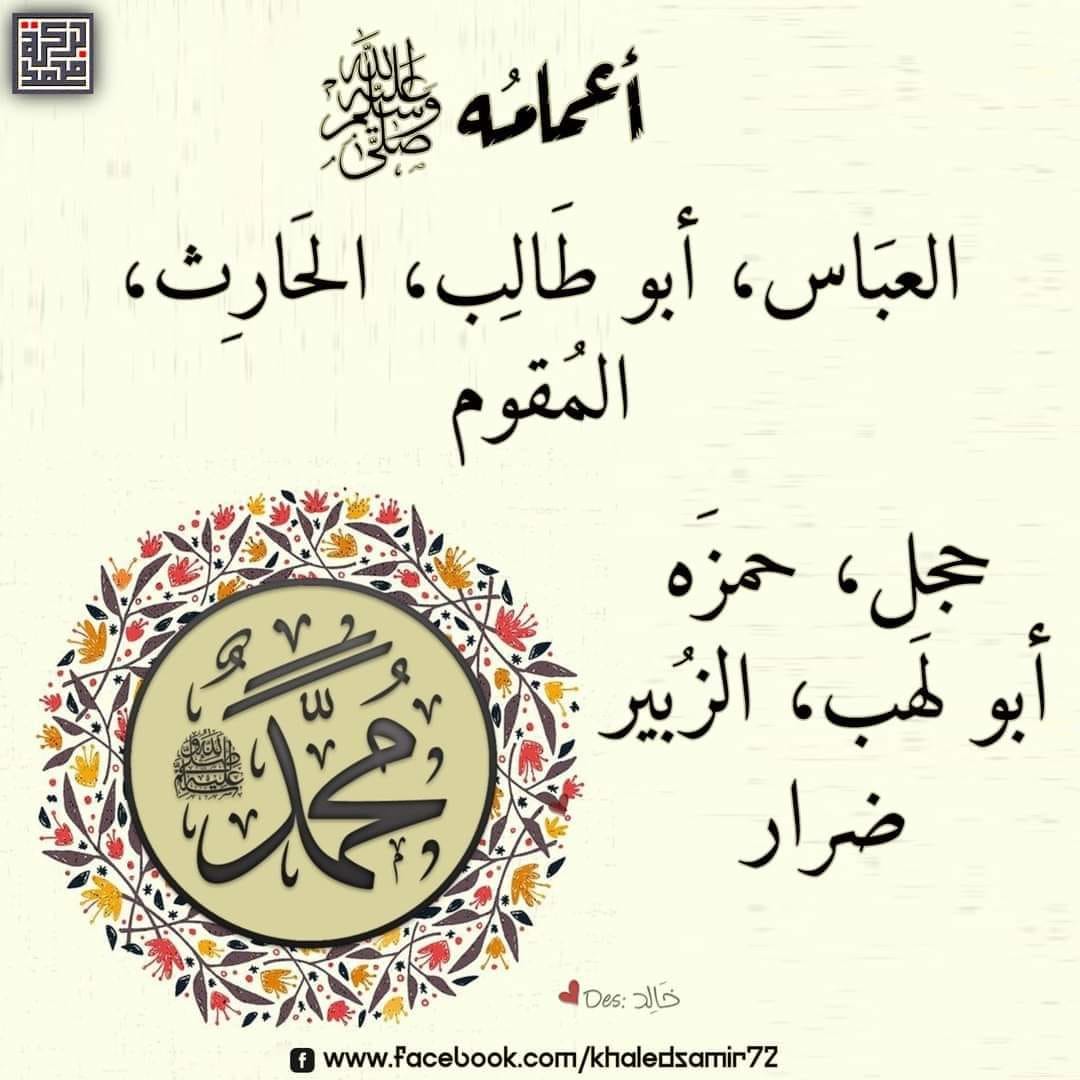 بركة محمد
أعمامُه صلى الله عليه وسلم
العبَاس، أبو طَالِب، الحَارِث،
المُقوم
حجل، حمزَه
أبو لهَب، الزُبير
ضرار
مُحمَّدٌ
صلى الله عليه وسلم
Des: خَالِد
www.facebook.com/khaledsamir72